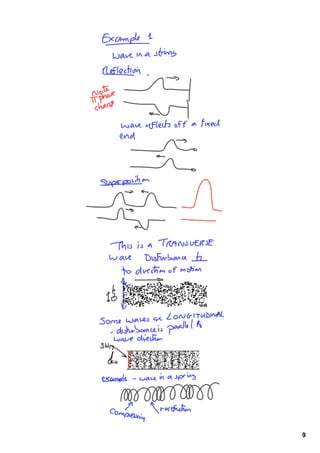 Example 1
wave in a string
Reflection
Note
π phase
change
wave reflects off a fixed
end
Superposition
This is a TRANSVERSE
wave Disturbance
to direction of motion
Some waves are LONGITUDINAL
- disturbance is parallel to
wave direction
example - wave in a spring
Compression rarefaction
9